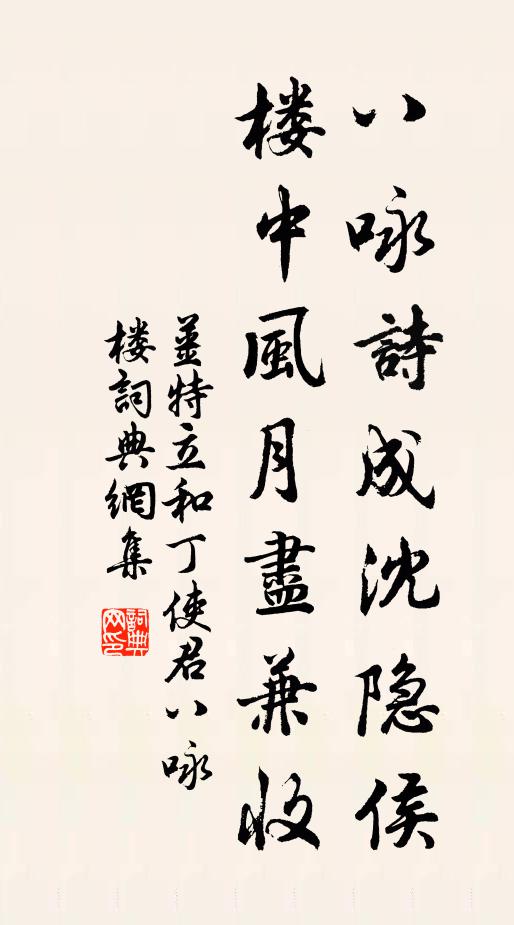 八咏詩成沈隐侯
楼中風月盡兼收
薑特立和丁使君八咏
楼詞典網集
詞典網印